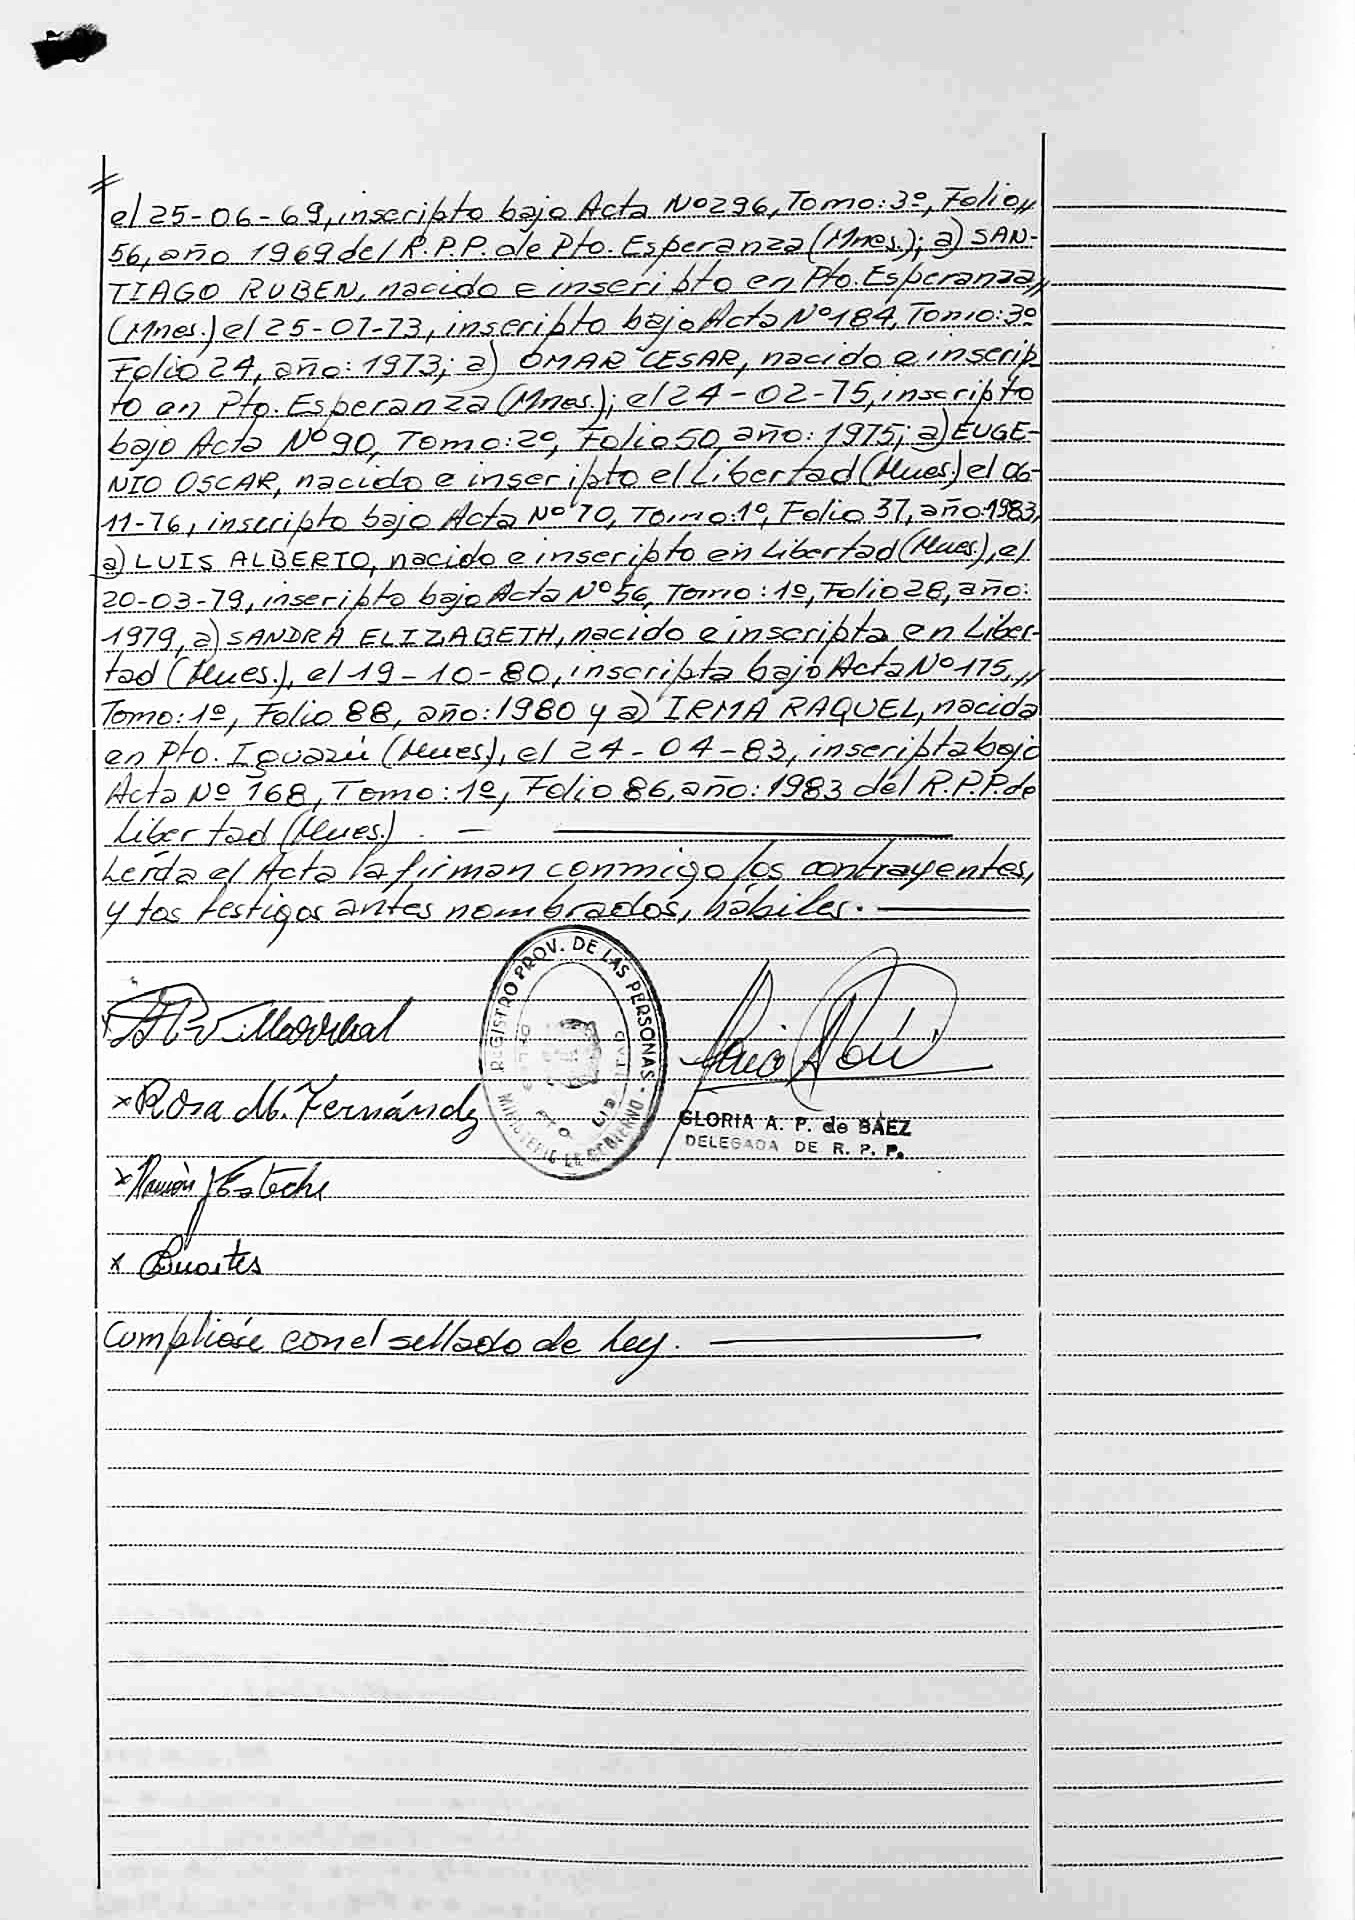 el 25-06-69, inscripto bajo Acta Nº 296, Tomo: 3º, Folio,,
56, año 1969 del R.P.P. de Pto. Esperanza (Mnes.); a) SAN-
TIAGO RUBEN, nacido e inscripto en Pto. Esperanza,,
(Mnes.) el 25-07-73, inscripto bajo Acta Nº 184, Tomo: 3º
Folio 24, año: 1973; a) OMAR CESAR, nacido e inscrip-
to en Pto. Esperanza (Mnes.); el 24-02-75, inscripto
bajo Acta Nº 90, Tomo: 2º, Folio 50, año: 1975; a) EUGE-
NIO OSCAR, nacido e inscripto el Libertad (Mnes.) el 06-
11-76, inscripto bajo Acta Nº 70, Tomo: 1º, Folio 37, año 1983,
a) LUIS ALBERTO, nacido e inscripto en Libertad (Mnes.), el
20-03-79, inscripto bajo Acta Nº 56, Tomo: 1º, Folio 28, año:
1979, a) SANDRA ELIZABETH, nacido e inscripta en Liber-
tad (Mnes.), el 19-10-80, inscripta bajo Acta Nº 175,,,
Tomo: 1º, Folio 88, año: 1980 y a) IRMA RAQUEL, nacida
en Pto. Iguazú (Mnes), el 24-04-83, inscripta bajo
Acta Nº 168, Tomo: 1º, Folio 86, año: 1983 del R.P.P. de
Libertad (Mnes.). —
Leída el Acta la firman conmigo los contrayentes,
y los testigos antes nombrados, hábiles.
REGISTRO PROV. DE LAS PERSONAS -
MINISTERIO DE GOBIERNO
x Rosa M. Fernández
GLORIA A. P. de BAEZ
DELEGADA DE R. P. P.
x Ramón Esteche
x
Cumplióse con el sellado de ley.